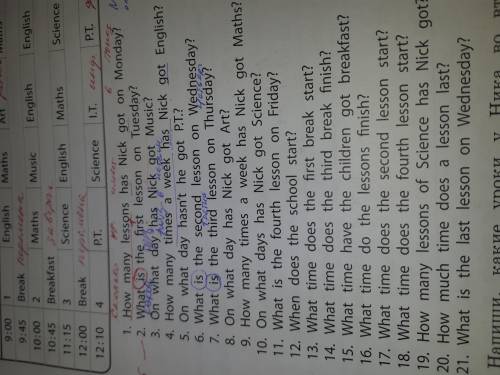 9:00 1 English Maths Art Maths
9:45 Break перемена
10:00 2 Maths Music English English
10:45 Breakfast завтрак
11:15 3 Science English Maths Science
12:00 Break перемена
12:10 4 P.T. Science I.T. P.T.
1. How many lessons has Nick got on Monday?
2. What is the first lesson on Tuesday?
3. On what day has Nick got Music?
4. How many times a week has Nick got English?
5. On what day hasn't he got P.T.?
6. What is the second lesson on Wednesday?
7. What is the third lesson on Thursday?
8. On what day has Nick got Art?
9. How many times a week has Nick got Maths?
10. On what days has Nick got Science?
11. What is the fourth lesson on Friday?
12. When does the school start?
13. What time does the first break start?
14. What time does the third break finish?
15. What time have the children got breakfast?
16. What time do the lessons finish?
17. What time does the second lesson start?
18. What time does the fourth lesson start?
19. How many lessons of Science has Nick got?
20. How much time does a lesson last?
21. What is the last lesson on Wednesday?